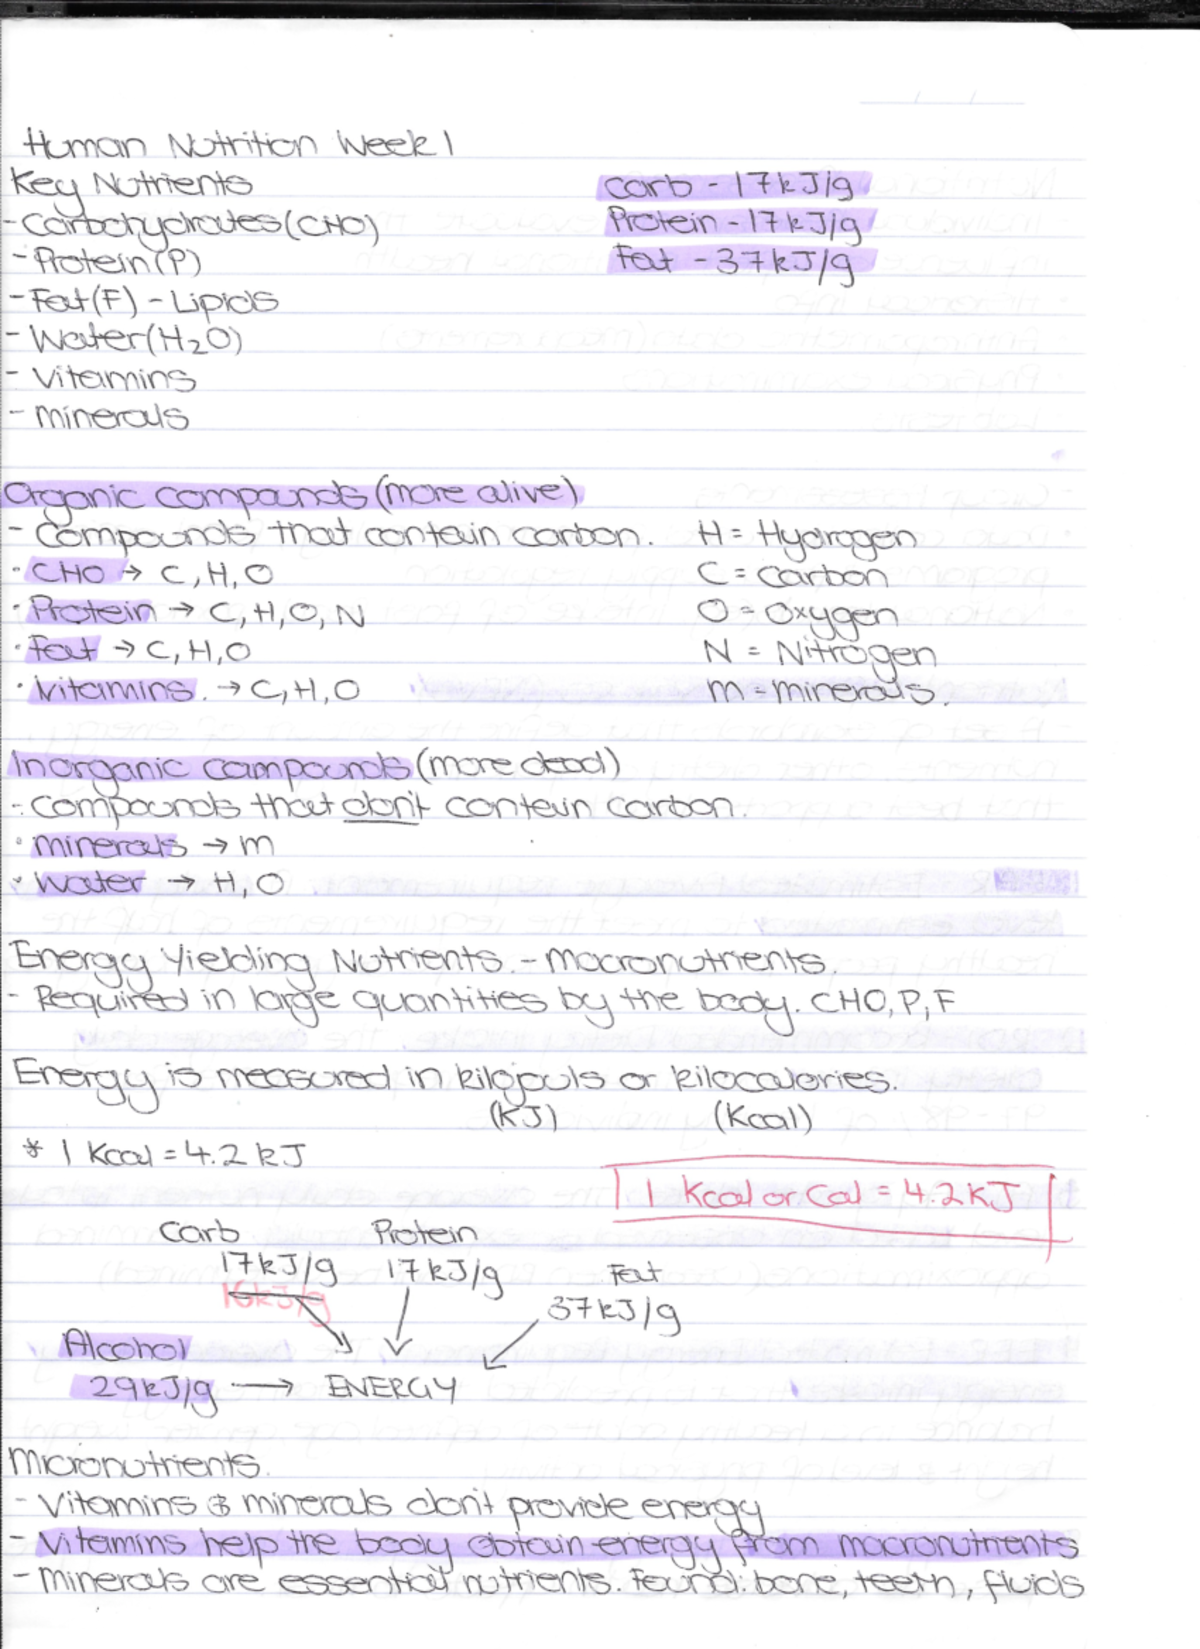 Human Nutrition Week 1
Key Nutrients
carb - 17kJ/g
- Carbohydrates (CHO)
Protein - 17kJ/g
- Protein (P)
Fat - 37kJ/g
- Fat (F) - Lipids
- Water (H₂O)
- Vitamins
- Minerals
Organic compounds (more alive)
- Compounds that contain carbon.
H = Hydrogen
• CHO → C, H, O
C = Carbon
• Protein → C, H, O, N
O = Oxygen
• Fat → C, H, O
N = Nitrogen
• Vitamins. → C, H, O
M = minerals.
Inorganic compounds (more dead)
- Compounds that don't contain carbon.
• Minerals → M
• Water → H, O
Energy Yielding Nutrients. - Macronutrients.
- Required in large quantities by the body. CHO, P, F
Energy is measured in kilojouls or kilocalories.
(KJ) (Kcal)
* 1 Kcal = 4.2 kJ
1 Kcal or Cal = 4.2KJ
Carb Protein
17kJ/g 17kJ/g Fat
16kJ/g 37kJ/g
Alcohol
29kJ/g → ENERGY
Micronutrients.
- Vitamins & minerals don't provide energy
- Vitamins help the body obtain energy from macronutrients
- Minerals are essential nutrients. Found: bone, teeth, fluids